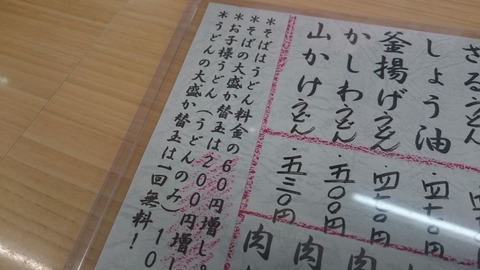 ざるうどん
しょう油
釜揚げうどん
かしわうどん
山かけうどん
・五〇〇円
・五三〇円
肉
肉
＊そばはうどん料金の60円増し。
＊そばの大盛か替玉は200円増し
＊お子様うどん（うどんのみ）10
＊うどんの大盛か替玉は一回無料！